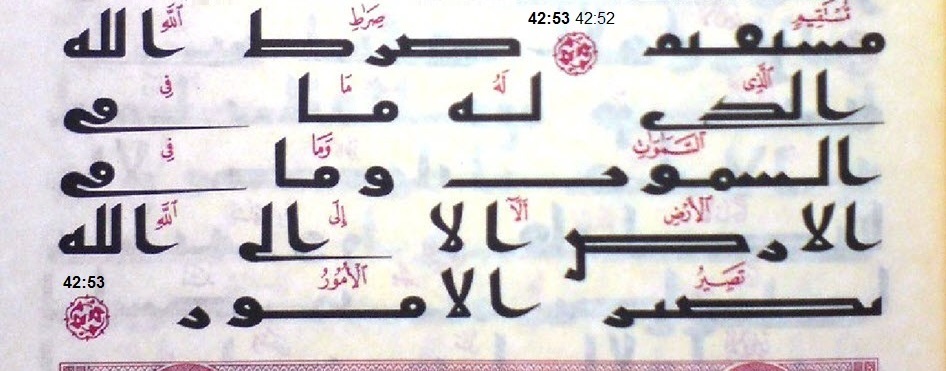 42:53 42:52
مُسْتَقِيمٍ صِرَٰطِ ٱللَّهِ
مستقيم صرط الله
ٱلَّذِى لَهُ مَا فِى
الذى له ما فى
ٱلسَّمَٰوَٰتِ وَمَا فِى
السموت وما فى
ٱلْأَرْضِ أَلَآ إِلَى ٱللَّهِ
الارض الا الى الله
تَصِيرُ ٱلْأُمُورُ
تصير الامور
42:53